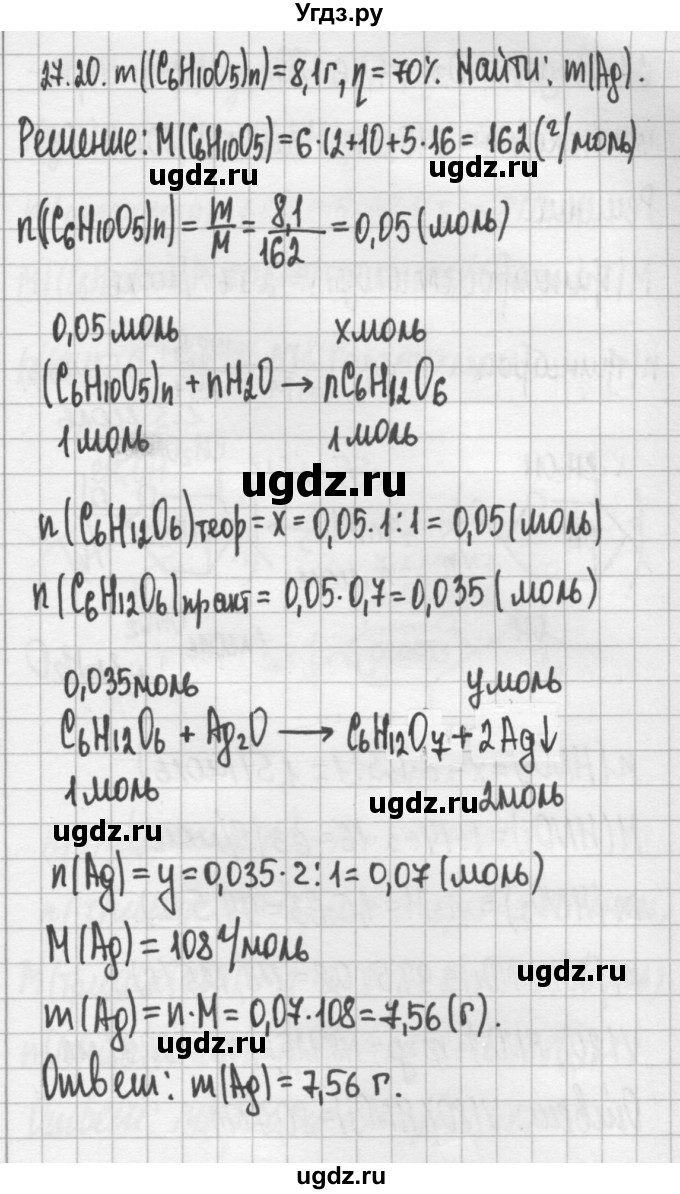 Угдз.ру
27.20. m((C6H10O5)n)=8,1г, η=70%. Найти: m(Ag).
Решение: M(C6H10O5)=6·12+10+5·16=162(г/моль)
ugdz.ru ugdz.ru
n((C6H10O5)n)=m/M=8,1/162=0,05(моль)
0,05моль xмоль
(C6H10O5)n+nH2O→nC6H12O6
1моль 1моль
ugdz.ru
n(C6H12O6)теор=x=0,05·1:1=0,05(моль)
n(C6H12O6)практ=0,05·0,7=0,035(моль)
0,035моль yмоль
C6H12O6+Ag2O→C6H12O7+2Ag↓
1моль 2моль
ugdz.ru
ugdz.ru
n(Ag)=y=0,035·2:1=0,07(моль)
M(Ag)=108г/моль
ugdz.ru
m(Ag)=n·M=0,07·108=7,56(г).
ugdz.ru
Ответ: m(Ag)=7,56 г.
ugdz.ru